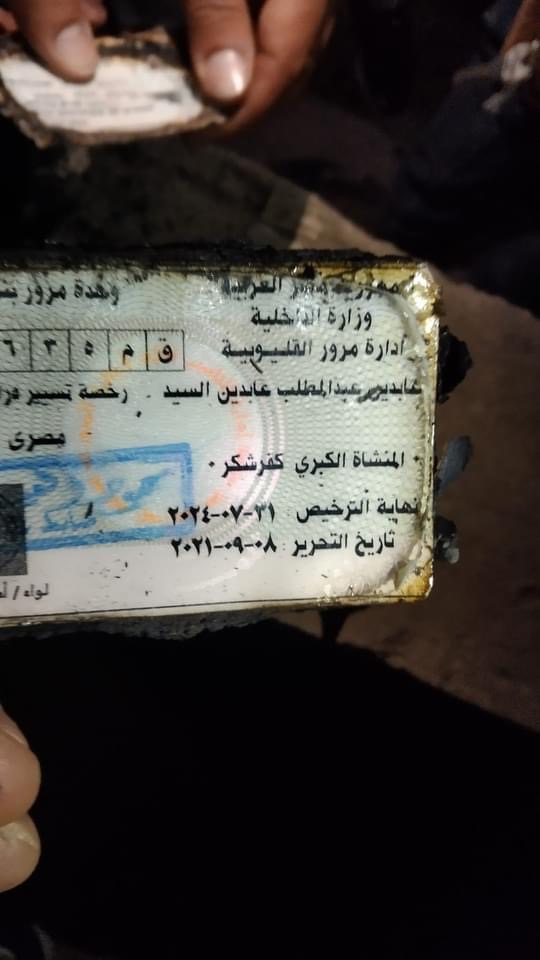 جمهورية مصر العربية
وزارة الداخلية
وحدة مرور
أدارة مرور القليوبية
ق م ٥ ٣ ٦
عابدين عبدالمطلب عابدين السيد
رخصة تسيير
مصرى
المنشاة الكبري كفرشكر
نهاية الترخيص ٣١-٠٧-٢٠٢٤
تاريخ التحرير ٠٨-٠٩-٢٠٢١
لواء /